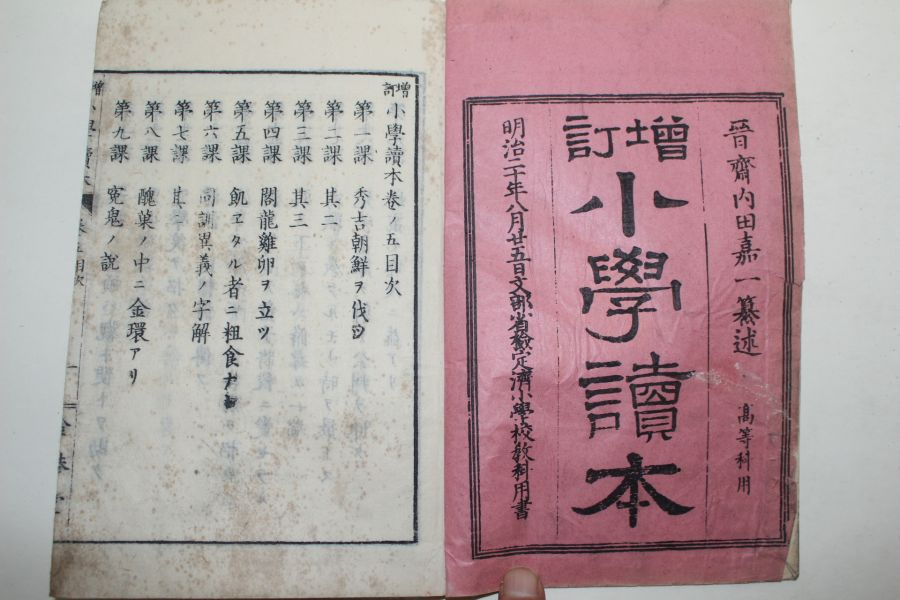 晉齋内田嘉一纂述 高等科用
增訂
小學讀本
明治二十年八月廿五日文部省檢定濟小學校教科用書
增訂小學讀本卷ノ五目次
第一課 秀吉朝鮮ヲ伐ツ
第二課 其二
第三課 其三
第四課 閣龍雞卵ヲ立ツ
第五課 飢ヱタル者ニ粗食
第六課 同訓異義ノ字解
第七課 其二
第八課 醜菓ノ中ニ金環アリ
第九課 寃鬼ノ說